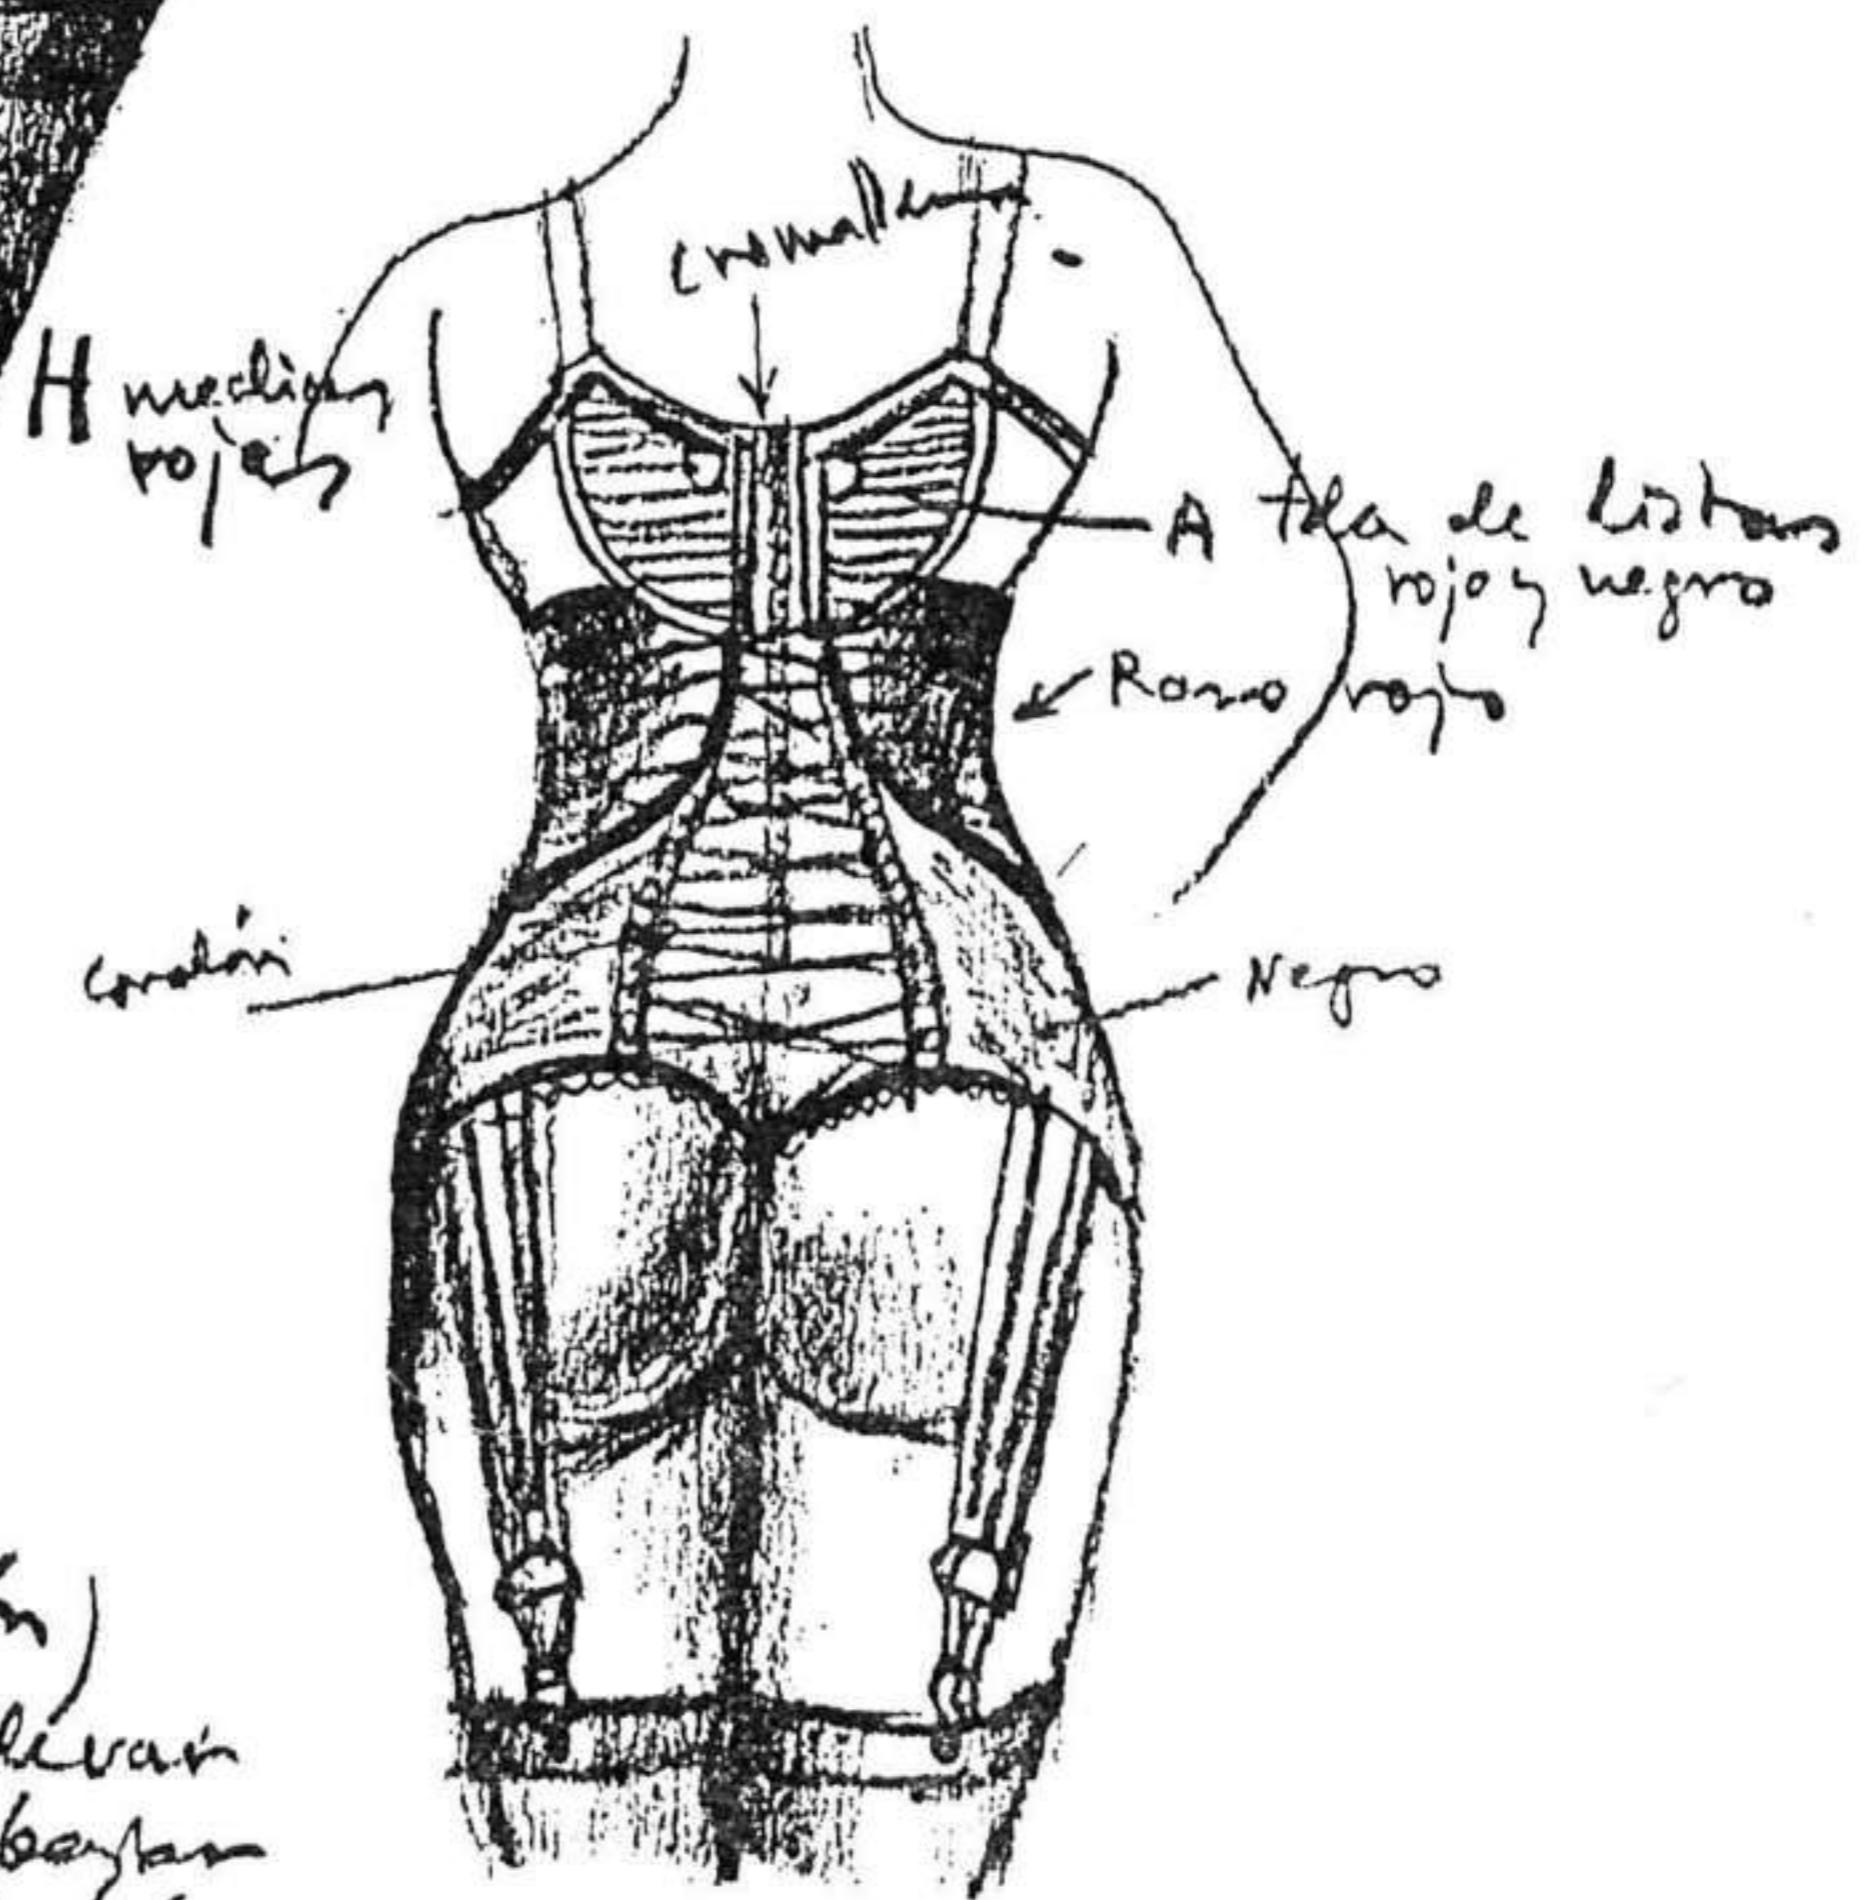 cremallera
H medias
rojas
A tela de listas
rojo y negro
Raso rojo
cordón
Negro
llevan